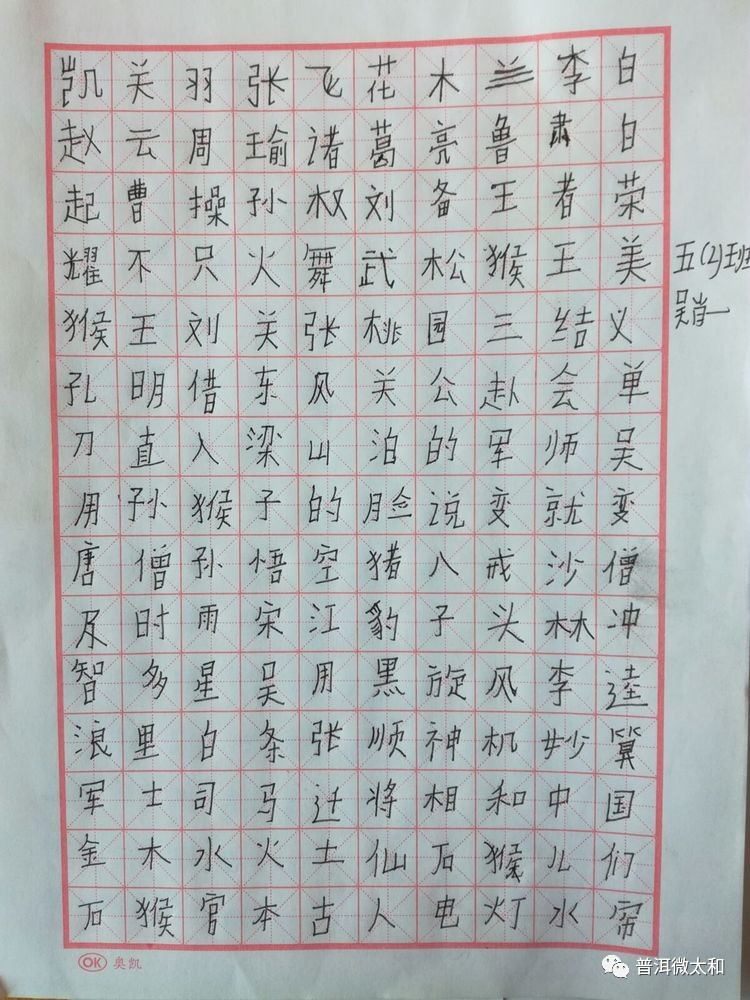 凯关羽张飞花木兰李白
赵云周瑜诸葛亮鲁肃白
起曹操孙权刘备王者荣
耀不只火舞武松猴王美
猴王刘关张桃园三结义
孔明借东风关公赴会单
刀直入梁山泊的军师吴
用孙猴子的脸说变就变
唐僧孙悟空猪八戒沙僧
及时雨宋江豹子头林冲
智多星吴用黑旋风李逵
浪里白条张顺神机妙算
军士司马迁将相和中国
金木水火土仙石猴儿们
石猴官本古人电灯水帘
五(2)班
吴肖一
OK 奥凯
普洱微太和